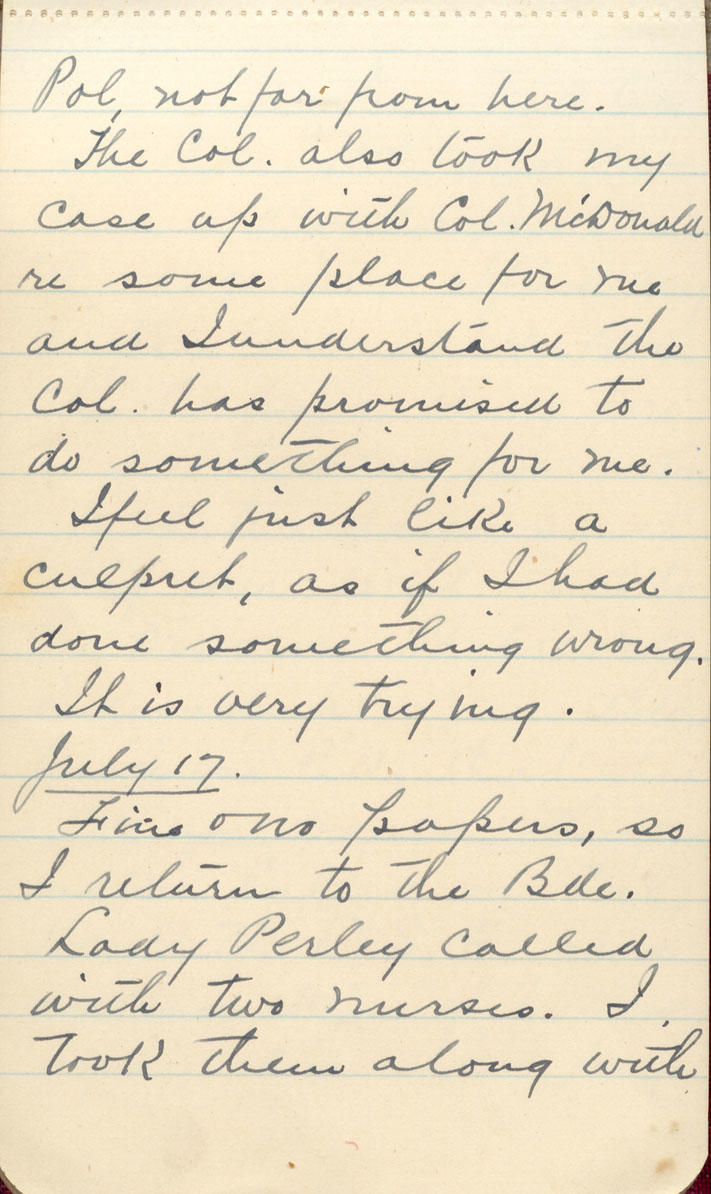 Pol, not far from here.
The Col. also took my
case up with Col. McDonald
re some place for me
and I understand the
Col. has promised to
do something for me.
I feel just like a
culpret, as if I had
done something wrong.
It is very trying.
July 17.
Fine o no papers, so
I return to the Bde.
Lady Perley called
with two nurses. I
took them along with